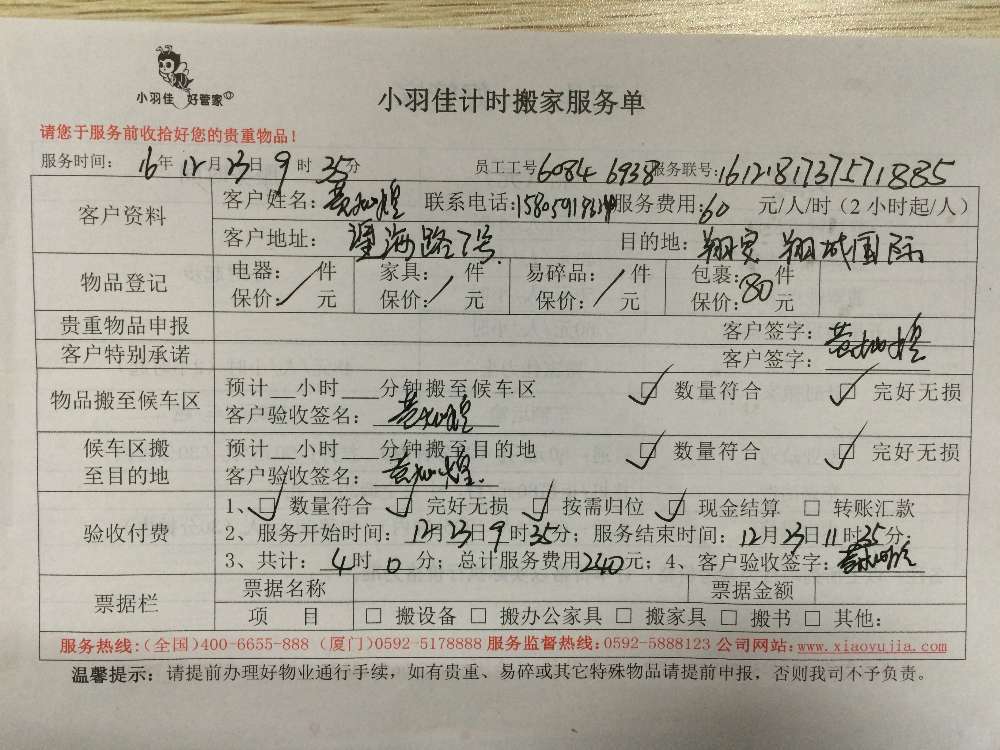 小羽佳 好管家
小羽佳计时搬家服务单
请您于服务前收拾好您的贵重物品！
服务时间： 16年 12月 23日 9时 35分 员工工号 6084 6938 服务联号：161218173757188 5
客户资料 客户姓名： 联系电话： 服务费用：60 元/人/时（2 小时起/人）
客户地址： 海路7号 目的地： 翔安 翔城国际
物品登记 电器： 件 家具： 件 易碎品： 件 包裹： 件
保价： 元 保价： 元 保价： 元 保价：80 元
贵重物品申报 客户签字：
客户特别承诺 客户签字：
物品搬至候车区 预计___小时___分钟搬至候车区 ☑ 数量符合 ☑ 完好无损
客户验收签名：
候车区搬至目的地 预计___小时___分钟搬至目的地 ☑ 数量符合 ☑ 完好无损
客户验收签名：
验收付费 1、☑ 数量符合 ☑ 完好无损 ☑ 按需归位 ☑ 现金结算 □ 转账汇款
2、服务开始时间：12月23日9时35分；服务结束时间：12月23日11时35分；
3、共计：4时0分；总计服务费用240元；4、客户验收签字：
票据栏 票据名称 票据金额
项 目 □ 搬设备 □ 搬办公家具 □ 搬家具 □ 搬书 □ 其他：
服务热线：（全国）400-6655-888（厦门）0592-5178888 服务监督热线：0592-5888123 公司网站：www.xiaoyujia.com
温馨提示：请提前办理好物业通行手续，如有贵重、易碎或其它特殊物品请提前申报，否则我司不予负责。